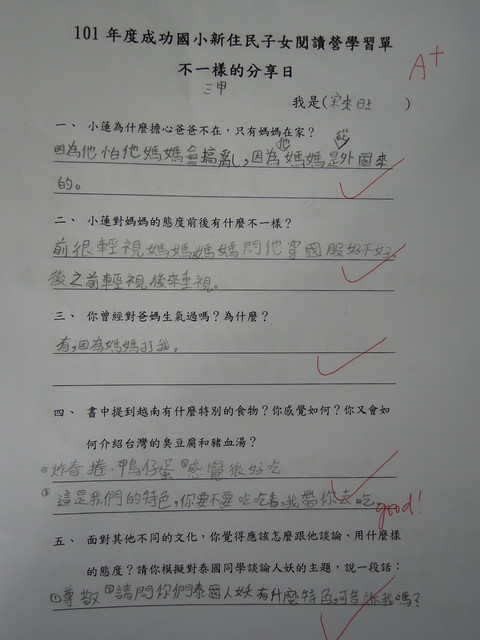 101 年度成功國小新住民子女閱讀營學習單
A+
不一樣的分享日
三甲
我是(宋來旺)
一、 小蓮為什麼擔心爸爸不在，只有媽媽在家？
他 從
因為他怕他媽媽會搞亂，因為媽媽是外國來
的。
二、 小蓮對媽媽的態度前後有什麼不一樣？
前很輕視媽媽，媽媽問他穿國服好不好。
後之前輕視，後來重視。
三、 你曾經對爸媽生氣過嗎？為什麼？
有，因為媽媽打我。
四、 書中提到越南有什麼特別的食物？你感覺如何？你又會如
何介紹台灣的臭豆腐和豬血湯？
①炸春捲、鴨仔蛋 感覺很好吃
②這是我們的特色，你要不要吃吃看，我帶你去吃
good!
五、 面對其他不同的文化，你覺得應該怎麼跟他談論、用什麼樣
的態度？請你模擬對泰國同學談論人妖的主題，說一段話：
①尊敬 ②請問你們泰國人妖有什麼特色，可告訴我嗎？